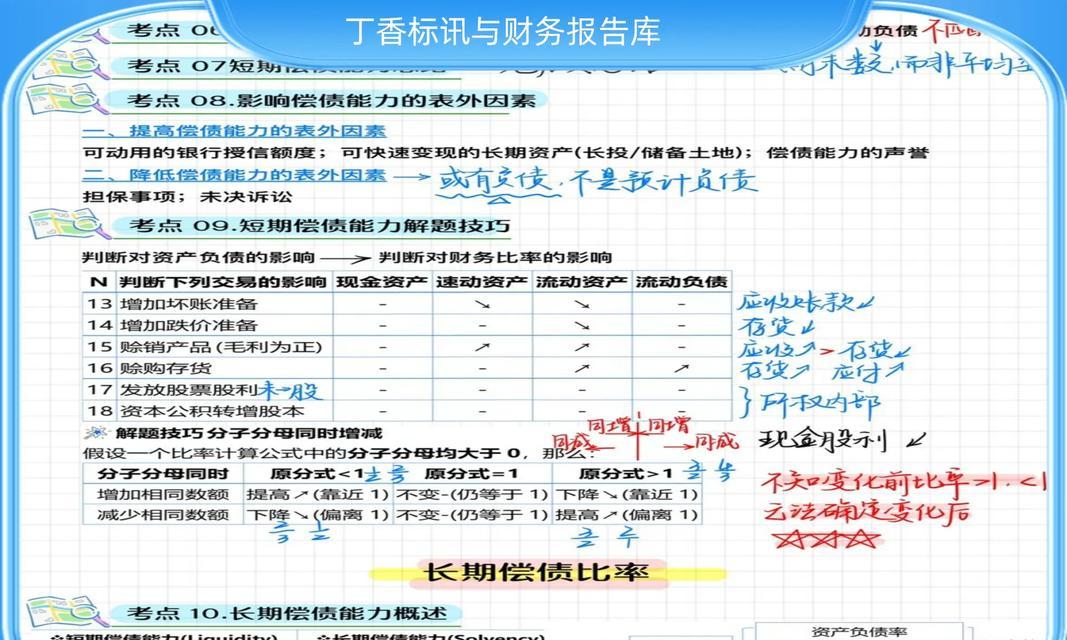 丁香标讯与财务报告库
考点 06
动负债
考点 07短期偿债能力
期末数,而非平均
考点 08.影响偿债能力的表外因素
一、提高偿债能力的表外因素
可动用的银行授信额度；可快速变现的长期资产(长投/储备土地)；偿债能力的声誉
二、降低偿债能力的表外因素 → 或有负债,不是预计负债
担保事项；未决诉讼
考点 09.短期偿债能力解题技巧
判断对资产负债的影响 → 判断对财务比率的影响
N 判断下列交易的影响 现金资产 速动资产 流动资产 流动负债
13 增加坏账准备 - ↘ ↘ - 应收账款↙
14 增加跌价准备 - - ↘ - 存货↙
15 赊销产品(毛利为正) - ↗ ↗ - 应收↗>存货↙
16 赊购存货 - - ↗ ↗ 存货↗ 应付↗
17 发放股票股利 未→股 - - - -
18 资本公积转增股本 - - - - }所权内部
解题技巧 分子分母同时增减
同增 同增
同减 同减
现金股利↙
假设一个比率计算公式中的分子分母均大于 0，那么：
分子分母同时 原分式<1 原分式=1 原分式>1
增加相同数额 提高↗(靠近 1) 不变-(仍等于 1) 下降↘(靠近 1)
减少相同数额 下降↘(偏离 1) 不变-(仍等于 1) 提高↗(偏离 1)
不知变化前比率>1.<1
无法确定变化后
长期偿债比率
考点 10.长期偿债能力概述
短期偿债能力(Liquidity) 长期偿债能力(Solvency)
资产负债率